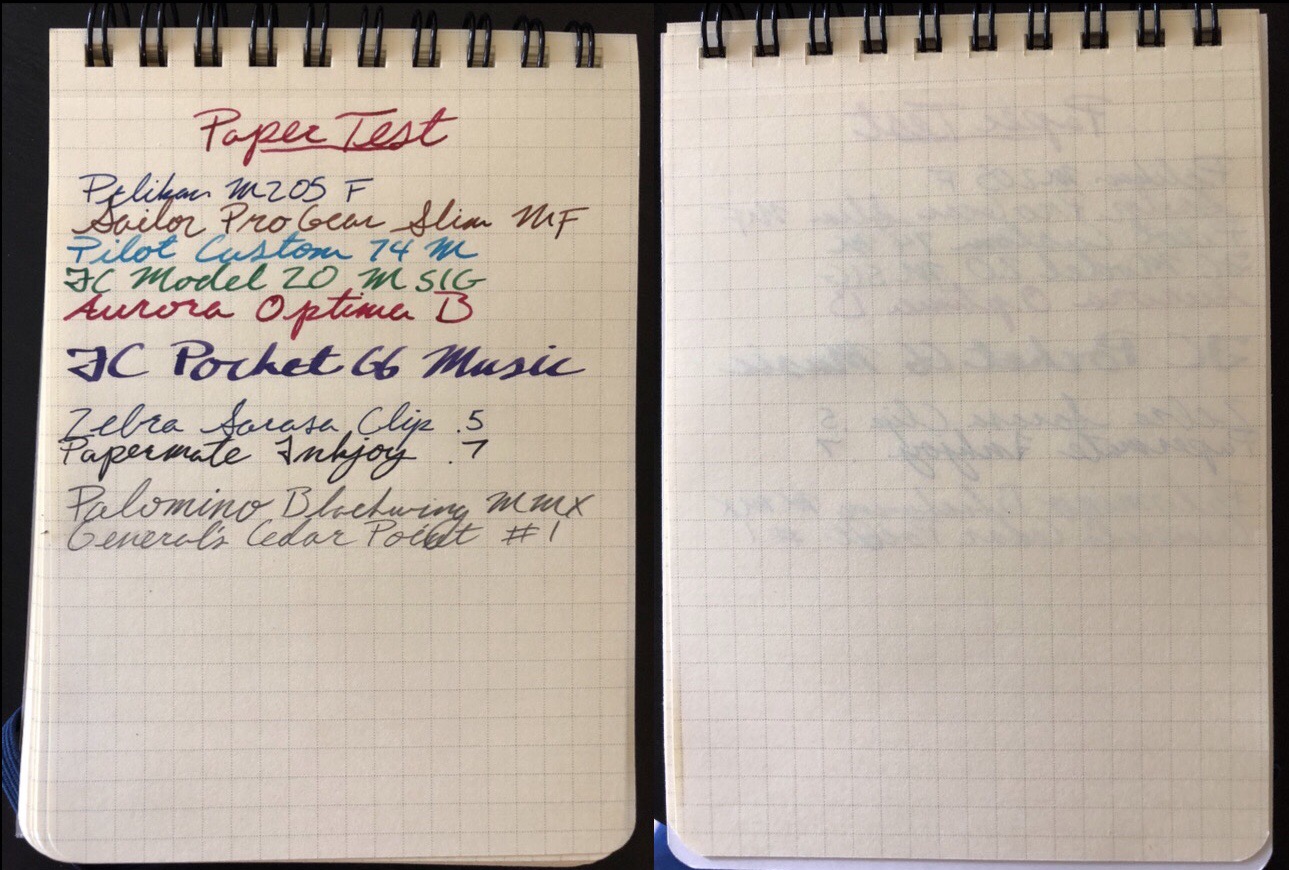 Paper Test
Pelikan M205 F
Sailor Pro Gear Slim MF
Pilot Custom 74 M
FC Model 20 M SIG
Aurora Optima B
FC Pocket 66 Music
Zebra Sarasa Clip .5
Papermate Inkjoy .7
Palomino Blackwing MMX
General's Cedar Point #1